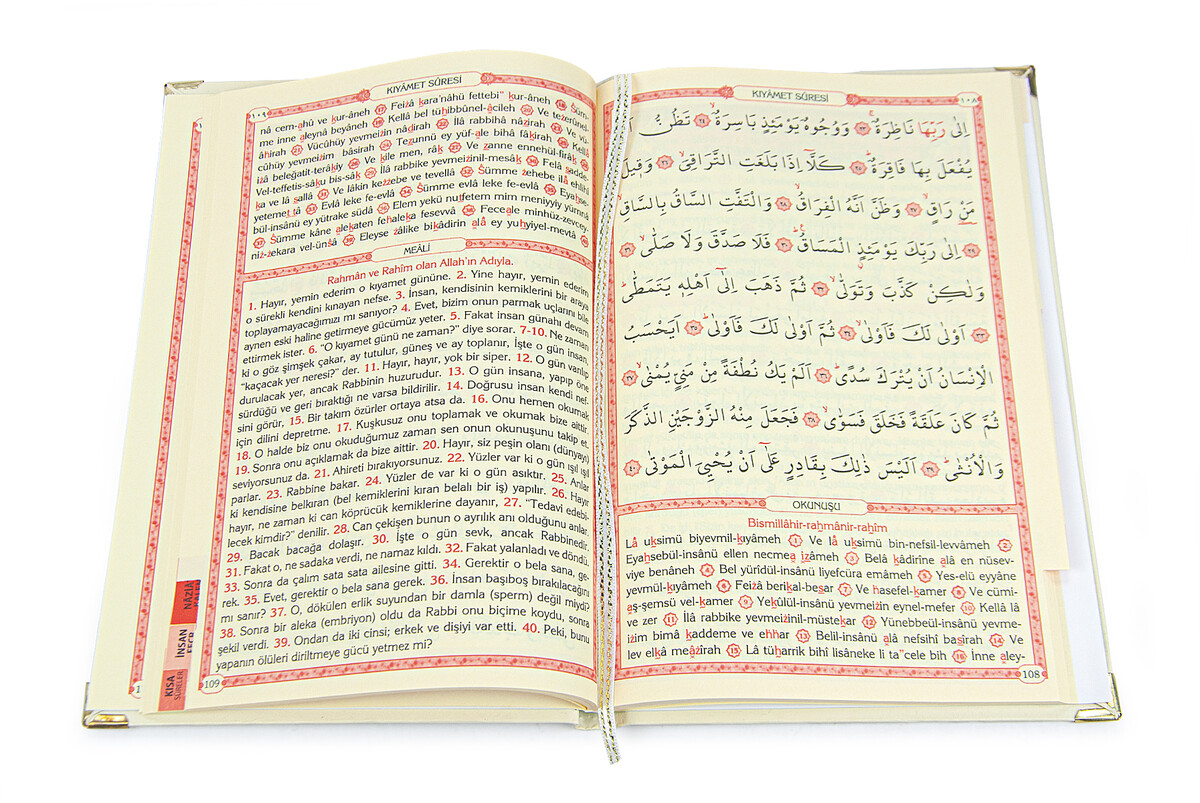 KIYÂMET SÛRESİ
١٠٨
اِلٰى رَبِّهَا نَاظِرَةٌۚ ﴿٢٣﴾ وَوُجُوهٌ يَوْمَئِذٍ بَاسِرَةٌۙ ﴿٢٤﴾ تَظُنُّ
يُفْعَلَ بِهَا فَاقِرَةٌۜ ﴿٢٥﴾ كَلَّٓا اِذَا بَلَغَتِ التَّرَاقِيَۙ ﴿٢٦﴾ وَقٖيلَ
مَنْ رَاقٍۙ ﴿٢٧﴾ وَظَنَّ اَنَّهُ الْفِرَاقُۙ ﴿٢٨﴾ وَالْتَفَّتِ السَّاقُ بِالسَّاقِۙ
﴿٢٩﴾ اِلٰى رَبِّكَ يَوْمَئِذٍ الْمَسَاقُۜ ﴿٣٠﴾ فَلَا صَدَّقَ وَلَا صَلّٰىۙ ﴿٣١﴾
وَلٰكِنْ كَذَّبَ وَتَوَلّٰىۙ ﴿٣٢﴾ ثُمَّ ذَهَبَ اِلٰٓى اَهْلِهٖ يَتَمَطّٰىۜ
﴿٣٣﴾ اَوْلٰى لَكَ فَاَوْلٰىۙ ﴿٣٤﴾ ثُمَّ اَوْلٰى لَكَ فَاَوْلٰىۜ ﴿٣٥﴾ اَيَحْسَبُ
الْاِنْسَانُ اَنْ يُتْرَكَ سُدًىۜ ﴿٣٦﴾ اَلَمْ يَكُ نُطْفَةً مِنْ مَنِيٍّ يُمْنٰىۙ ﴿٣٧﴾
ثُمَّ كَانَ عَلَقَةً فَخَلَقَ فَسَوّٰىۙ ﴿٣٨﴾ فَجَعَلَ مِنْهُ الزَّوْجَيْنِ الذَّكَرَ
وَالْاُنْثٰىۜ ﴿٣٩﴾ اَلَيْسَ ذٰلِكَ بِقَادِرٍ عَلٰٓى اَنْ يُحْيِيَ الْمَوْتٰى ﴿٤٠﴾
OKUNUŞU
Bismillâhir-rahmânir-rahîm
Lâ uksimü biyevmil-kıyâmeh 1 Ve lâ uksimü bin-nefsil-levvâmeh 2
Eyahsebül-insânü ellen necmea izâmeh 3 Belâ kâdirîne alâ en nüsev-
viye benâneh 4 Bel yürîdül-insânü liyefcüra emâmeh 5 Yes-elü eyyâne
yevmül-kıyâmeh 6 Feizâ berikal-besar 7 Ve hasefel-kamer 8 Ve cümi-
aş-şemsü vel-kamer 9 Yekûlül-insânü yevmeizin eynel-mefer 10 Kellâ lâ
ve zer 11 İlâ rabbike yevmeizinil-müstekar 12 Yünebbeül-insânü yevme-
izim bimâ kaddeme ve ehhar 13 Belil-insânü alâ nefsihî basîrah 14 Ve
lev elkâ meâzîrah 15 Lâ tüharrik bihî lisâneke li ta"cele bih 16 İnne aley-
108
KIYÂMET SÛRESİ
١٠٩
nâ cem-ahû ve kur-âneh 17 Feizâ kara'nâhü fettebi" kur-âneh 18 Süm-
me inne aleynâ beyâneh 19 Kellâ bel tühibbûnel-âcileh 20 Ve tezerûnel-
âhirah 21 Vücûhüy yevmeizin nâdirah 22 İlâ rabbihâ nâzirah 23 Ve vü-
cûhüy yevmeizim bâsirah 24 Tezunnü ey yüf-ale bihâ fâkirah 25 Kellâ
izâ beleğatit-terâkıy 26 Ve kîle men, râk 27 Ve zanne ennehül-firâk 28
Vel-teffetis-sâku bis-sâk 29 İlâ rabbike yevmeizinil-mesâk 30 Felâ sadde-
ka ve lâ sallâ 31 Ve lâkin kezzebe ve tevellâ 32 Sümme zehebe ilâ ehlihî
yetemettâ 33 Evlâ leke fe-evlâ 34 Sümme evlâ leke fe-evlâ 35 Eyahse-
bül-insânu ey yütrake südâ 36 Elem yekü nutfetem mim meniyyiy yümnâ
37 Sümme kâne alekaten fehaleka fesevvâ 38 Feceale minhüz-zevcey-
niz-zekara vel-ünsâ 39 Eleyse zâlike bikâdirin alâ ey yuhyiyel-mevtâ 40
MEÂLİ
Rahmân ve Rahîm olan Allah'ın Adıyla.
1. Hayır, yemin ederim o kıyamet gününe. 2. Yine hayır, yemin ederim
o sürekli kendini kınayan nefse. 3. İnsan, kendisinin kemiklerini bir araya
toplayamayacağımızı mı sanıyor? 4. Evet, bizim onun parmak uçlarını bile
aynen eski haline getirmeye gücümüz yeter. 5. Fakat insan günahı devam
ettirmek ister. 6. "O kıyamet günü ne zaman?" diye sorar. 7-10. Ne zaman
ki o göz şimşek çakar, ay tutulur, güneş ve ay toplanır, İşte o gün insan,
"kaçacak yer neresi?" der. 11. Hayır, hayır, yok bir siper. 12. O gün varılıp
durulacak yer, ancak Rabbinin huzurudur. 13. O gün insana, yapıp öne
sürdüğü ve geri bıraktığı ne varsa bildirilir. 14. Doğrusu insan kendi nef-
sini görür, 15. Bir takım özürler ortaya atsa da. 16. Onu hemen okumak
için dilini depretme. 17. Kuşkusuz onu toplamak ve okumak bize aittir.
18. O halde biz onu okuduğumuz zaman sen onun okunuşunu takip et.
19. Sonra onu açıklamak da bize aittir. 20. Hayır, siz peşin olanı (dünyayı)
seviyorsunuz da. 21. Ahireti bırakıyorsunuz. 22. Yüzler var ki o gün ışıl ışıl
parlar. 23. Rabbine bakar. 24. Yüzler de var ki o gün asıktır. 25. Anlar
ki kendisine belkıran (bel kemiklerini kıran belalı bir iş) yapılır. 26. Hayır
hayır, ne zaman ki can köprücük kemiklerine dayanır, 27. "Tedavi edebi-
lecek kimdir?" denilir. 28. Can çekişen bunun o ayrılık anı olduğunu anlar.
29. Bacak bacağa dolaşır. 30. İşte o gün sevk, ancak Rabbinedir.
31. Fakat o, ne sadaka verdi, ne namaz kıldı. 32. Fakat yalanladı ve döndü.
33. Sonra da çalım sata sata ailesine gitti. 34. Gerektir o bela sana, ge-
rek. 35. Evet, gerektir o bela sana gerek. 36. İnsan başıboş bırakılacağını
mı sanır? 37. O, dökülen erlik suyundan bir damla (sperm) değil miydi?
38. Sonra bir aleka (embriyon) oldu da Rabbi onu biçime koydu, sonra
şekil verdi. 39. Ondan da iki cinsi; erkek ve dişiyi var etti. 40. Peki, bunu
yapanın ölüleri diriltmeye gücü yetmez mi?
109
NÂZİÂT
İNSAN
FECR
KISA
SÛRELER